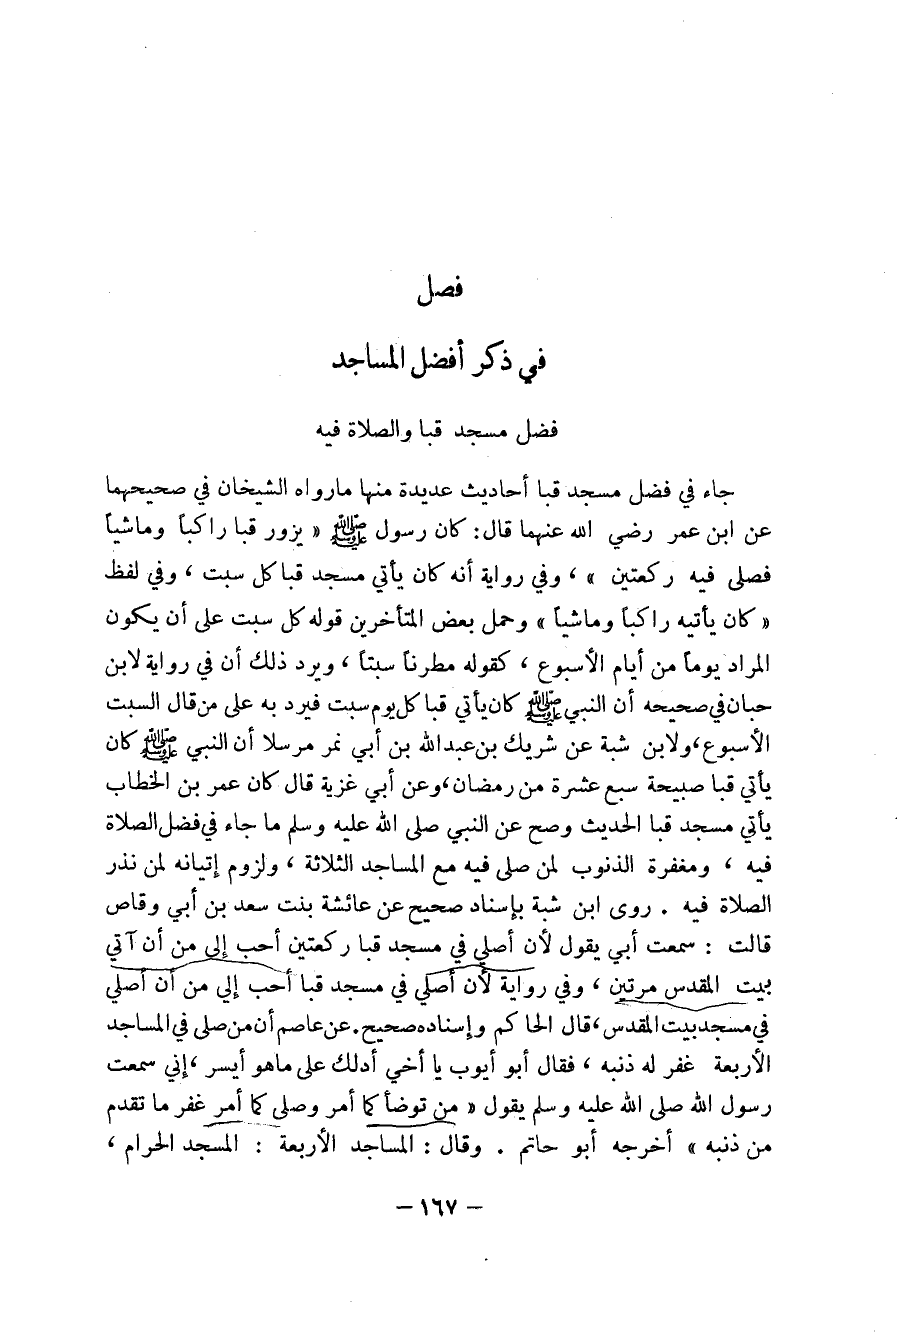 فصل
في ذكر أفضل المساجد
فضل مسجد قبا والصلاة فيه
جاء في فضل مسجد قبا أحاديث عديدة منها مارواه الشيخان في صحيحهما
عن ابن عمر رضي الله عنهما قال: كان رسول ﷺ « يزور قبا راكباً وماشياً
فصلى فيه ركعتين » ، وفي رواية أنه كان يأتي مسجد قبا كل سبت ، وفي لفظ
« كان يأتيه راكباً وماشياً » وحمل بعض المتأخرين قوله كل سبت على أن يكون
المراد يوماً من أيام الأسبوع ، كقوله مطرنا سبتاً ، ويرد ذلك أن في رواية لابن
حبان في صحيحه أن النبي ﷺ كان يأتي قبا كل يوم سبت فيرد به على من قال السبت
الأسبوع ، ولابن شبة عن شريك بن عبدالله بن أبي نمر مرسلا أن النبي ﷺ كان
يأتي قبا صبيحة سبع عشرة من رمضان ، وعن أبي غزية قال كان عمر بن الخطاب
يأتي مسجد قبا الحديث وصح عن النبي صلى الله عليه وسلم ما جاء في فضل الصلاة
فيه ، ومغفرة الذنوب لمن صلى فيه مع المساجد الثلاثة ، ولزوم إتيانه لمن نذر
الصلاة فيه . روى ابن شبة بإسناد صحيح عن عائشة بنت سعد بن أبي وقاص
قالت : سمعت أبي يقول لأن أصلي في مسجد قبا ركعتين أحب إلى من أن آتي
بيت المقدس مرتين ، وفي رواية لأن أصلي في مسجد قبا أحب إلي من أن أصلي
في مسجد بيت المقدس ، قال الحاكم وإسناده صحيح . عن عاصم أن من صلى في المساجد
الأربعة غفر له ذنبه ، فقال أبو أيوب يا أخي أدلك على ماهو أيسر ، إني سمعت
رسول الله صلى الله عليه وسلم يقول « من توضأ كما أمر وصلى كما أمر غفر ما تقدم
من ذنبه » أخرجه أبو حاتم . وقال : المساجد الأربعة : المسجد الحرام ،
– ١٦٧ –